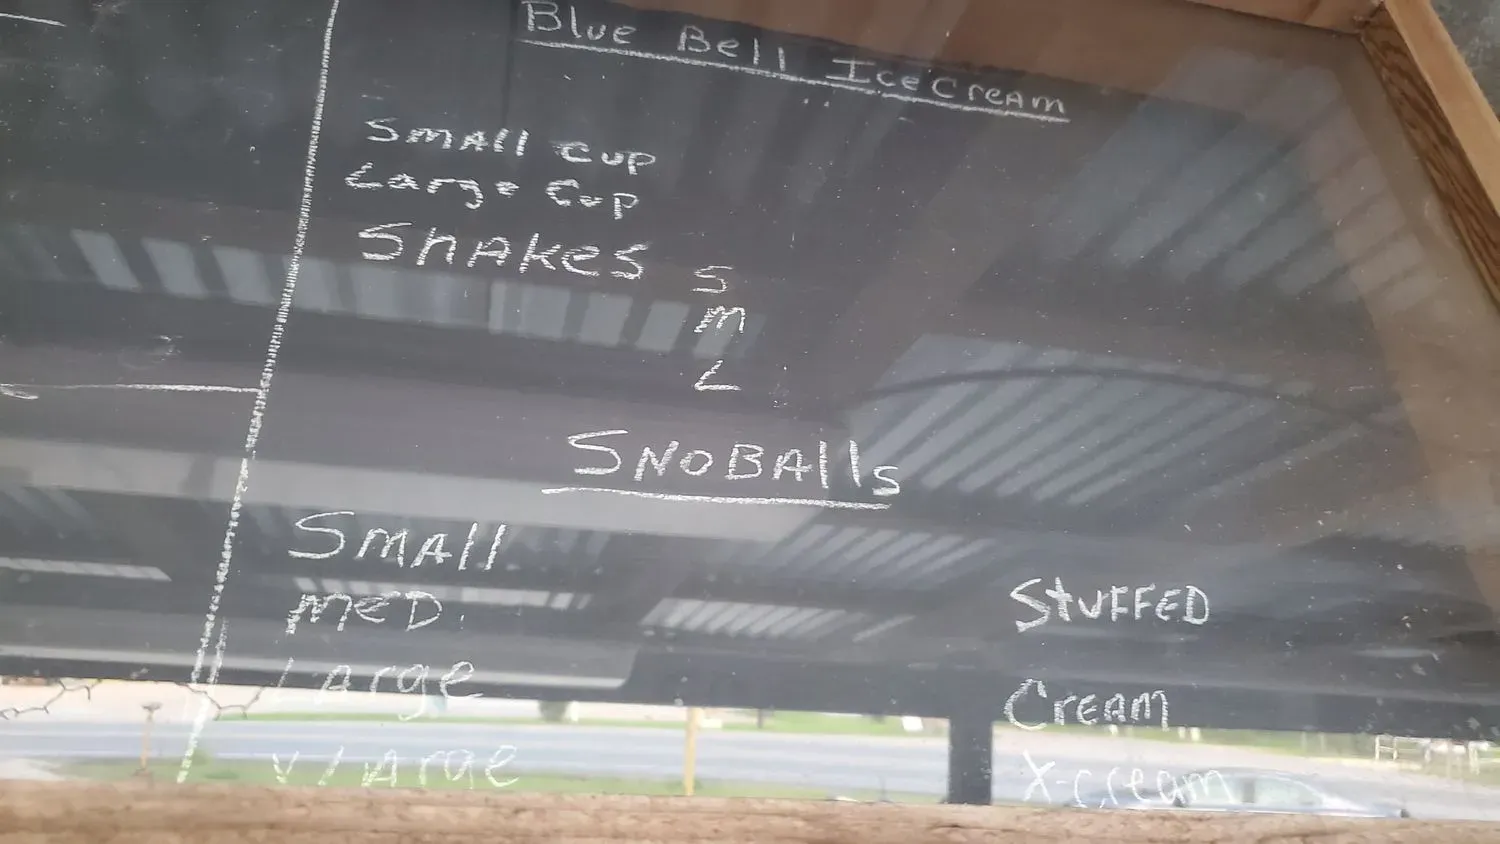 Blue Bell IceCream
Small cup
Large Cup
Shakes S
M
L
SNOBAlls
Small
MeD.
Large
X/Large
Stuffed
Cream
X-cream